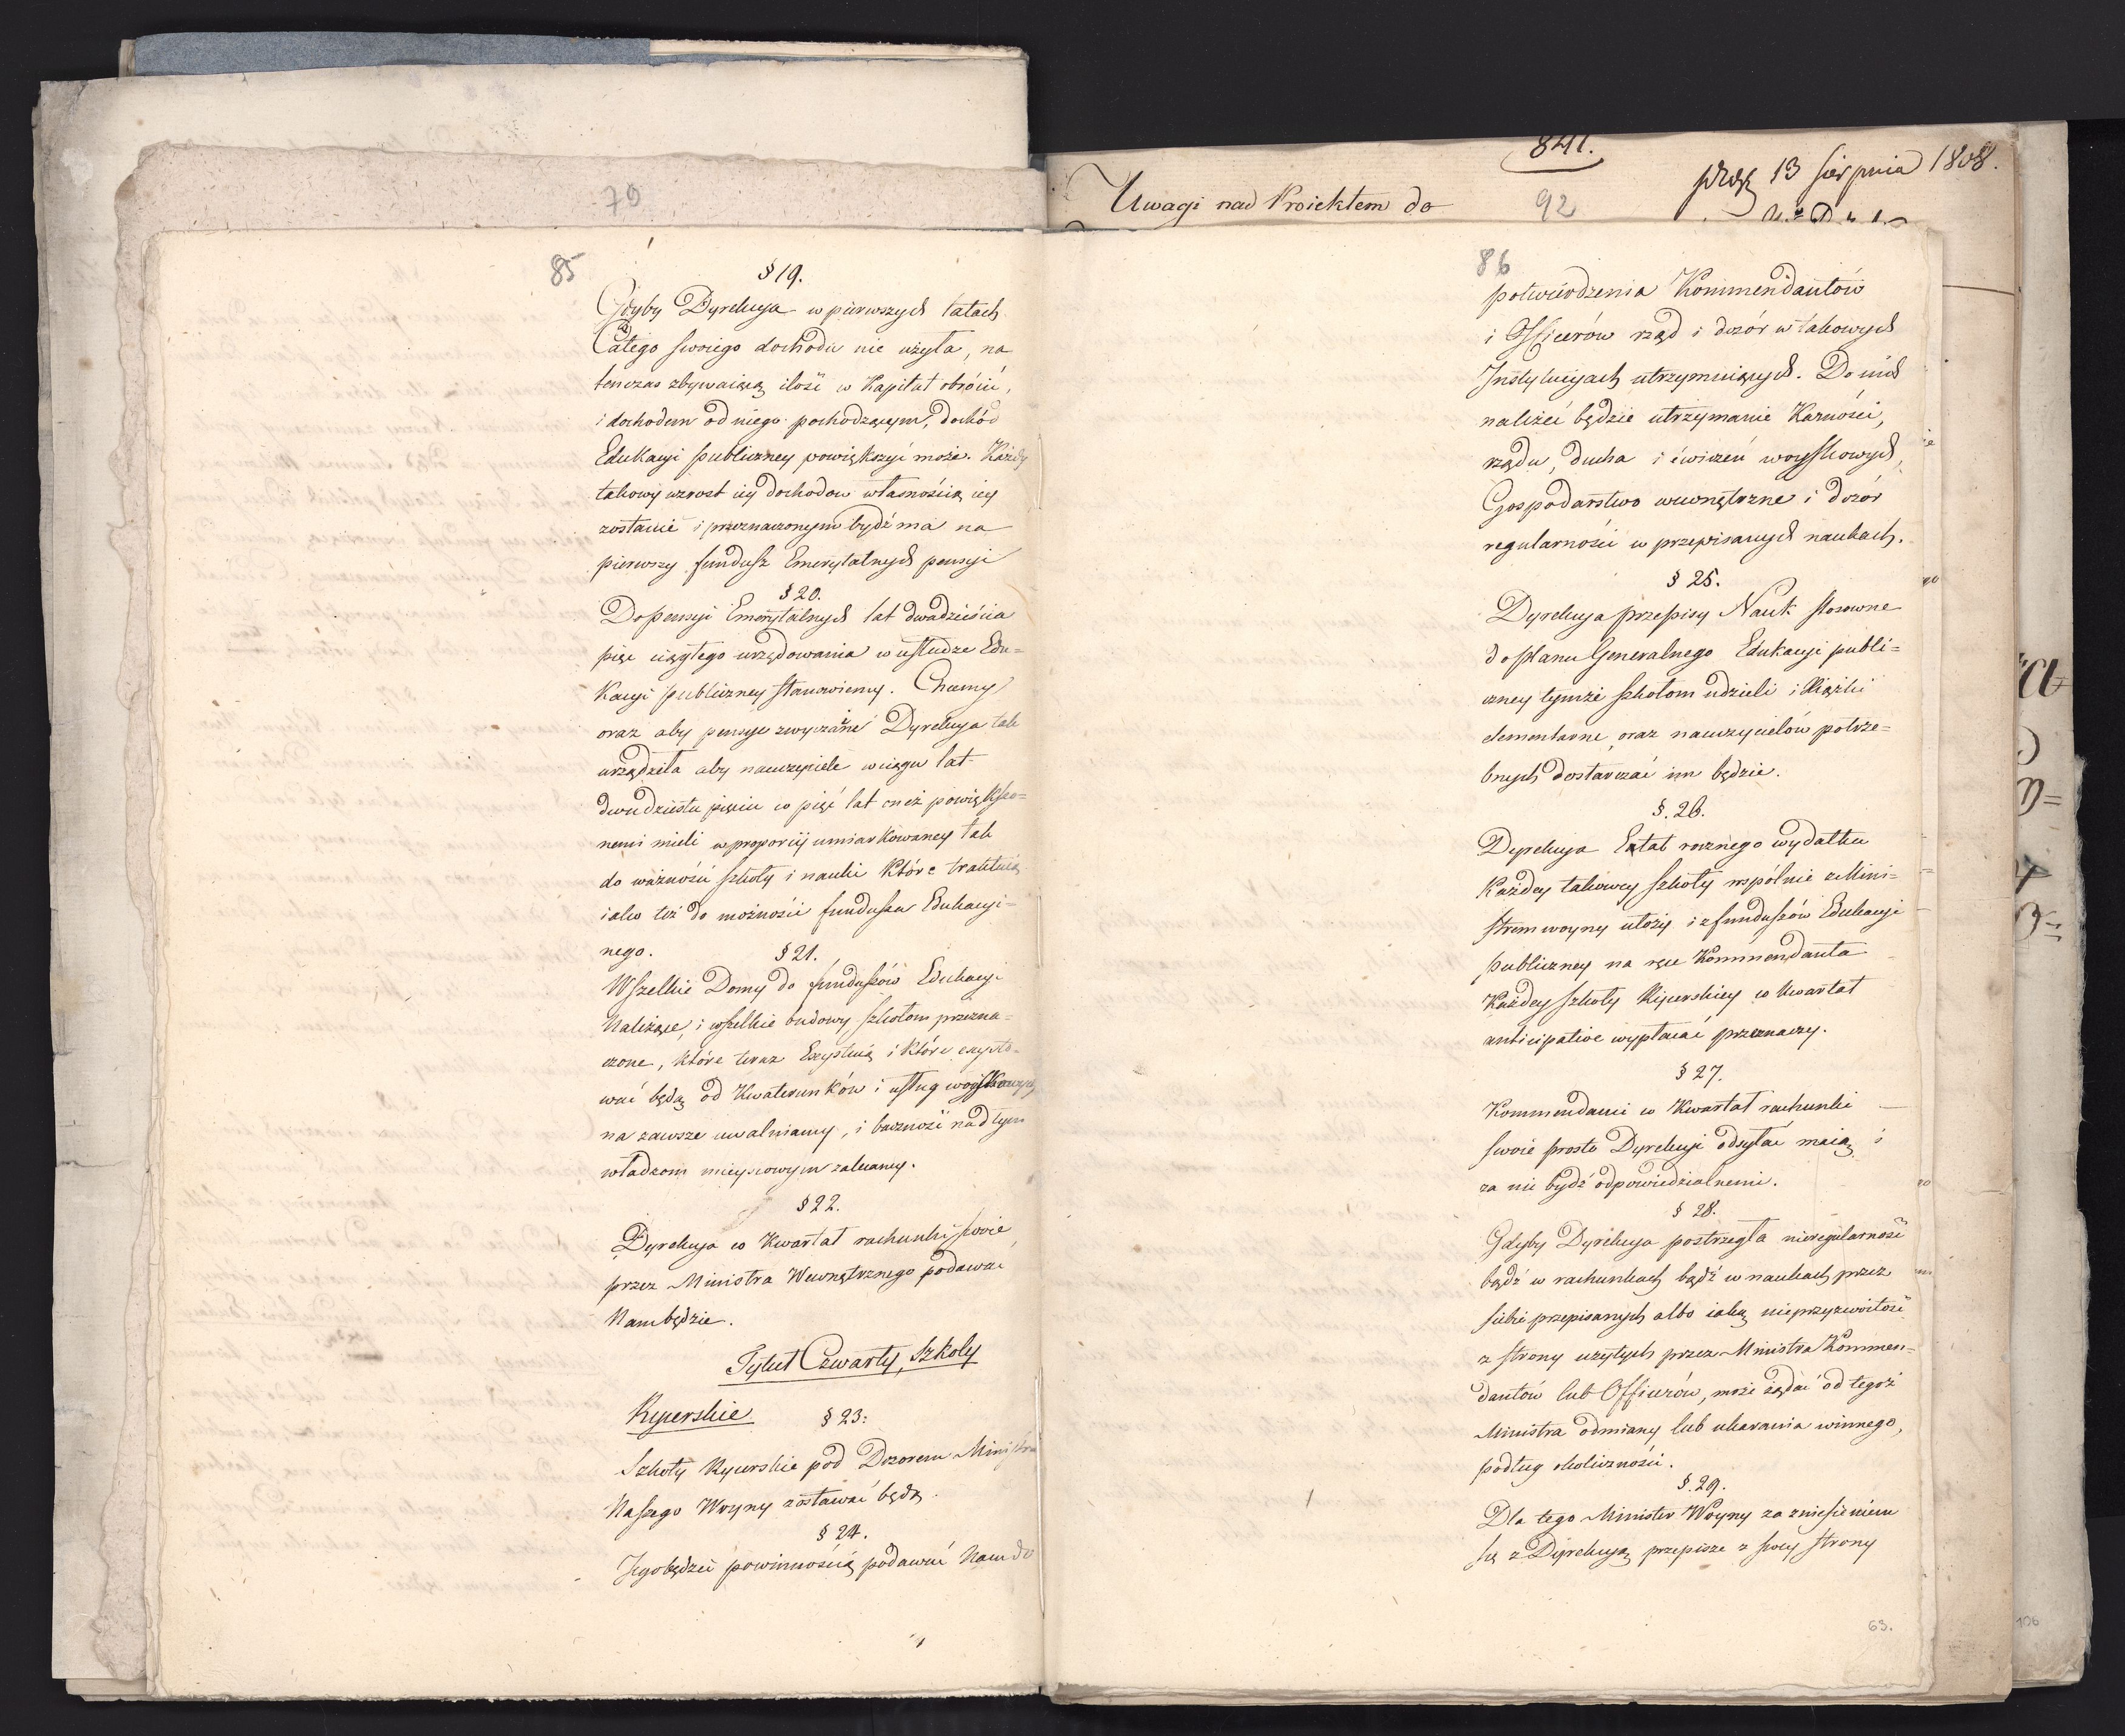 70
85
§ 19.
Gdyby Dyrekcya w pierwszych latach
Całego swoiego dochodu nie użyła, na
tenczas zbywaiącą ilość w Kapitał obrócić,
i dochodem od niego pochodzącym, dochód
Edukacyi publiczney powiększyć może. Każdy
takowy wzrost iey dochodow własnością iey
zostanie i przeznaczonym bydź ma na
pierwszy fundusz Emerytalnych pensyi
§ 20.
Do pensyi Emerytalnych lat dwadzieścia
pięc ciągłego urzędowania w usłudze Edu=
kacyi publiczney stanowiemy. Chcemy
oraz aby pensye zwyczáne Dyrekcya tak
urządziła aby nauczyciele w ciągu lat
dwudziestu pięciu co pięć lat oneż powiększo=
nemi mieli w proporcij umiarkowaney tak
do ważności szkoły i nauki które traktuią
iako też do możności funduszu Edukacyi=
nego.
§ 21.
Wszelkie Domy do funduszów Edukacyi
Należące, i wszelkie budowy szkołom przezna=
czone, które teraz Exystuią i które exysto=
wać będą od Kwaterunków i usług woyskowych
na zawsze uwalniamy, i baczność nad tym
władzom mieyscowym zalecamy.
§ 22.
Dyrekcya co Kwartał rachunki swoie,
przez Ministra Wewnętrznego podawac
Nam będzie.
Tytuł Czwarty, Szkoły
Rycerskie. § 23:
Szkoły Rycerskie pod Dozorem Ministra
Naszego Woyny zostawać będą.
§ 24.
Jego będzie powinnością podawać Nam do
841.
Uwagi nad Proiektem do
92
13 Sierpnia 1808.
86
potwierdzenia Kommendantów
i Officerów rząd i dozór w takowych
Instytucyach utrzymuiących. Do nich
należeć będzie utrzymanie Karności,
rządu, ducha i ćwiczeń woyskowych,
Gospodarstwo wewnętrzne i dozór
regularności w przepisanych naukach.
§ 25.
Dyrekcya przepisy Nauk stosowne
do planu Generalnego Edukacyi publi=
czney tymże szkołom udzieli i Xiążki
elementarne, oraz nauczycielów potrze=
bnych dostarczać im będzie.
§. 26.
Dyrekcya Etat rocznego wydatku
Każdey takowey szkoły wspólnie z Mini=
strem woyny ułoży i z funduszów Edukacyi
publiczney na ręce Kommendanta
Każdey szkoły Rycerskiey co Kwartał
anticipative wypłacać przeznaczy.
§ 27.
Kommendanci co Kwartał rachunki
swoie prosto Dyrekcyi odsyłać maią i
za nie bydź odpowiedzialnemi.
§ 28.
Gdyby Dyrekcya postrzegła nieregularność
bądź w rachunkach bądź w naukach przez
siebie przepisanych albo iaką nieprzyzwoitość
z strony użytych przez Ministra Kommen=
dantów lub Officerów, może żądać od tegoż
Ministra odmiany lub ukarania winnego,
podług okoliczności.
§. 29.
Dla tego Minister Woyny za zniesieniem
się z Dyrekcyą przepisze z swey strony
63.
106